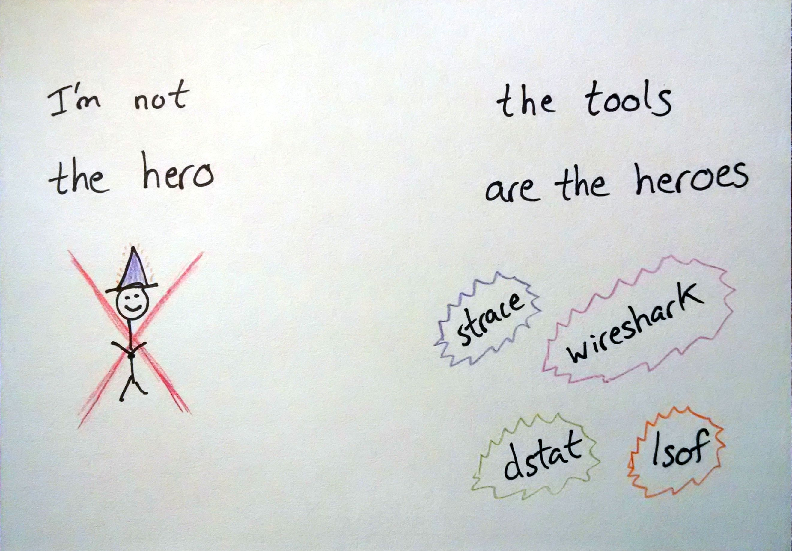 I'm not
the hero
the tools
are the heroes
strace
wireshark
dstat
lsof